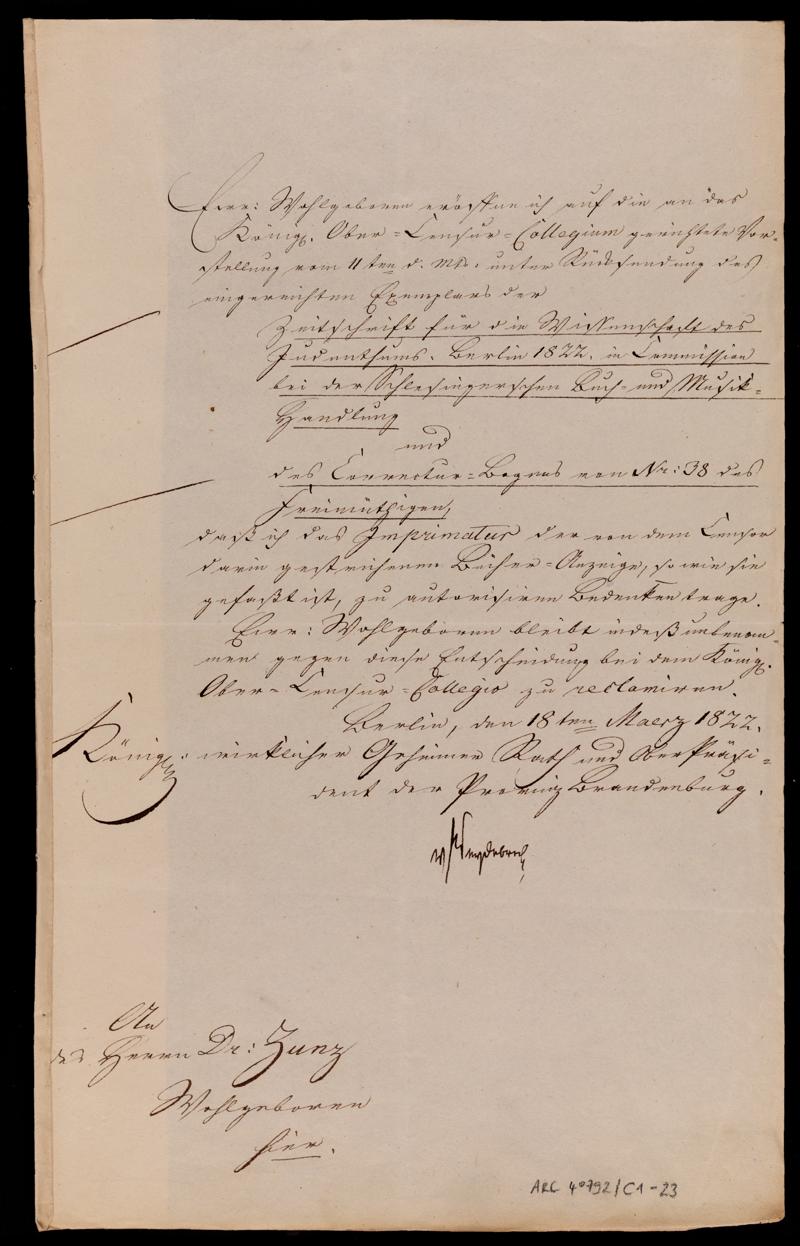 Ew: Wohlgeboren eröffne ich auf die an das
Königl. Ober-Censur-Collegium gerichtete Vor-
stellung vom 11ten d. Mts. unter Rücksendung des
eingereichten Exemplars der
Zeitschrift für die Wissenschaft des
Judenthums. Berlin 1822. in Commission
bei der Schlesingerschen Buch- und Musik-
Handlung
und
des Correctur-Bogens von Nr: 38 des
Freimüthigen,
daß ich das Imprimatur der von dem Censor
darin gestrichenen Bücher-Anzeige, so wie sie
gefaßt ist, zu autorisiren Bedenken trage.
Ew: Wohlgeboren bleibt indeß unbenom-
men gegen diese Entscheidung bei dem Königl.
Ober-Censur-Collegio zu reclamiren.
Berlin, den 18ten Maerz 1822.
Königl: wirklicher Geheimer Rath und OberPräsi-
dent der Provinz Brandenburg.
vHeydebreck
An
des Herrn Dr: Zunz
Wohlgeboren
hier.
ARC 4°792/C1-23